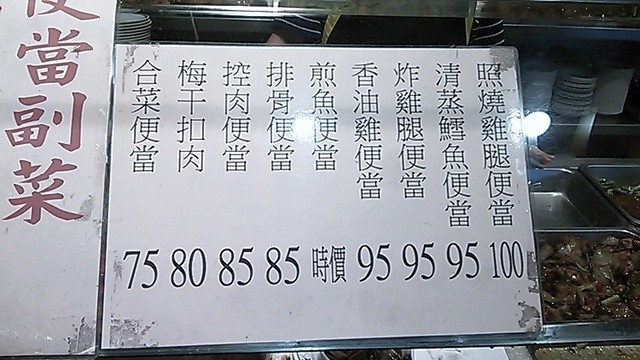 照燒雞腿便當 100
清蒸鱈魚便當 95
炸雞腿便當 95
香油雞便當 95
煎魚便當 時價
排骨便當 85
控肉便當 85
梅干扣肉 80
合菜便當 75
便當副菜